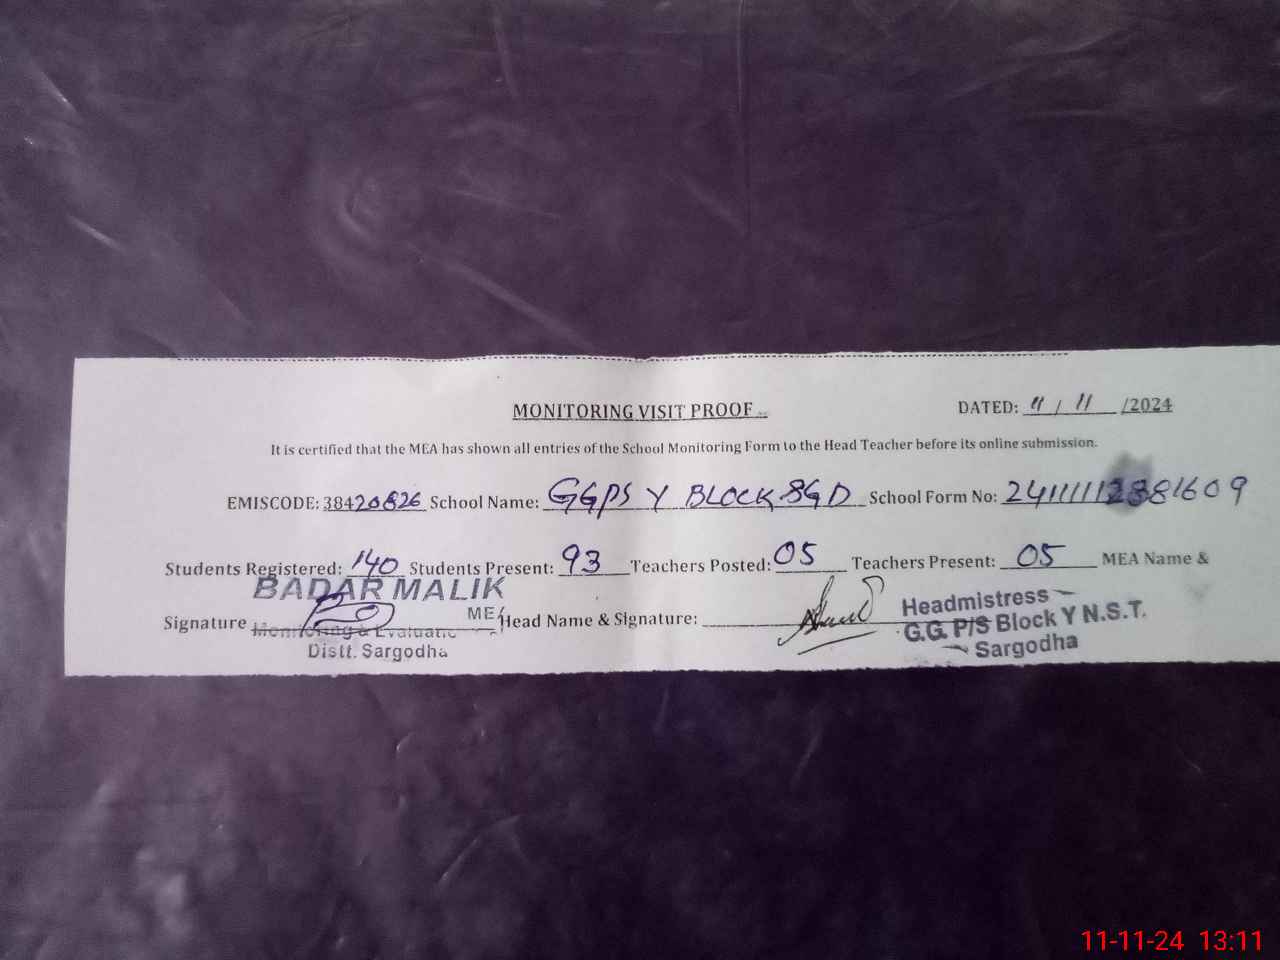 MONITORING VISIT PROOF
DATED: 11 / 11 /2024
It is certified that the MEA has shown all entries of the School Monitoring Form to the Head Teacher before its online submission.
EMISCODE: 38420826 School Name: GGPS Y BLOCK SGD School Form No:
Students Registered: 140 Students Present: 93 Teachers Posted: 05 Teachers Present: 05 MEA Name &
BADAR MALIK
MEA
Signature Head Name & Signature:
Monitoring & Evaluatio
Distt. Sargodha
Headmistress
G.G. P/S Block Y N.S.T.
Sargodha
11-11-24 13:11